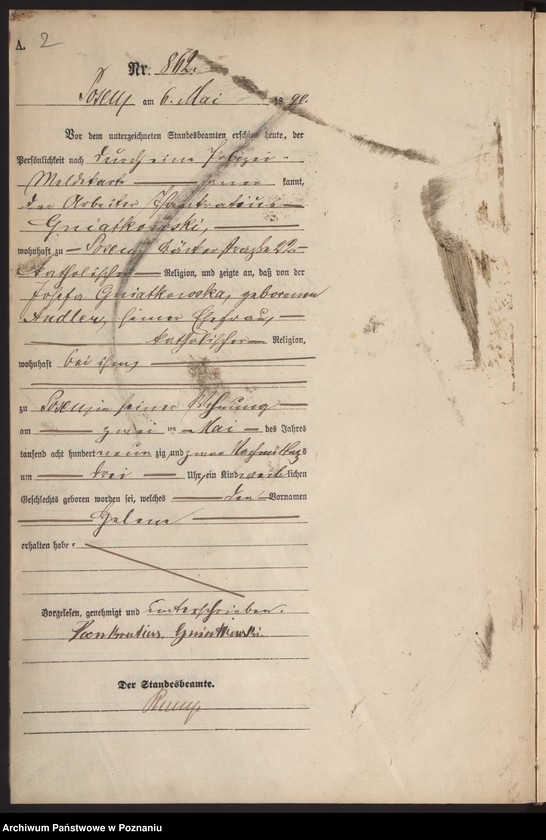 A. 2
Nr. 862.
Posen am 6. Mai 1890.
Vor dem unterzeichneten Standesbeamten erschien heute, der
Persönlichkeit nach durch eine Polizei-
Meldekarte kannt,
der Arbeiter Pankratius
Gniatkowski,
wohnhaft zu Posen, 22
katholischer Religion, und zeigte an, daß von der
Josefa Gniatkowska, geborenen
Andler, seiner Ehefrau,
katholischer Religion,
wohnhaft bei ihm,
zu Posen, in seiner Wohnung
am zwei ten Mai des Jahres
tausend acht hundert neun zig und zwar Nachmittags
um drei Uhr, ein Kind weiblichen
Geschlechts geboren worden sei, welches den Vornamen
Helene
erhalten habe.
Vorgelesen, genehmigt und unterschrieben.
Pankratius. Gniatkowski.
Der Standesbeamte.
Archiwum Państwowe w Poznaniu